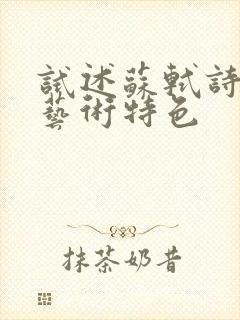 試述蘇軾詩
藝術特色
抹茶奶昔